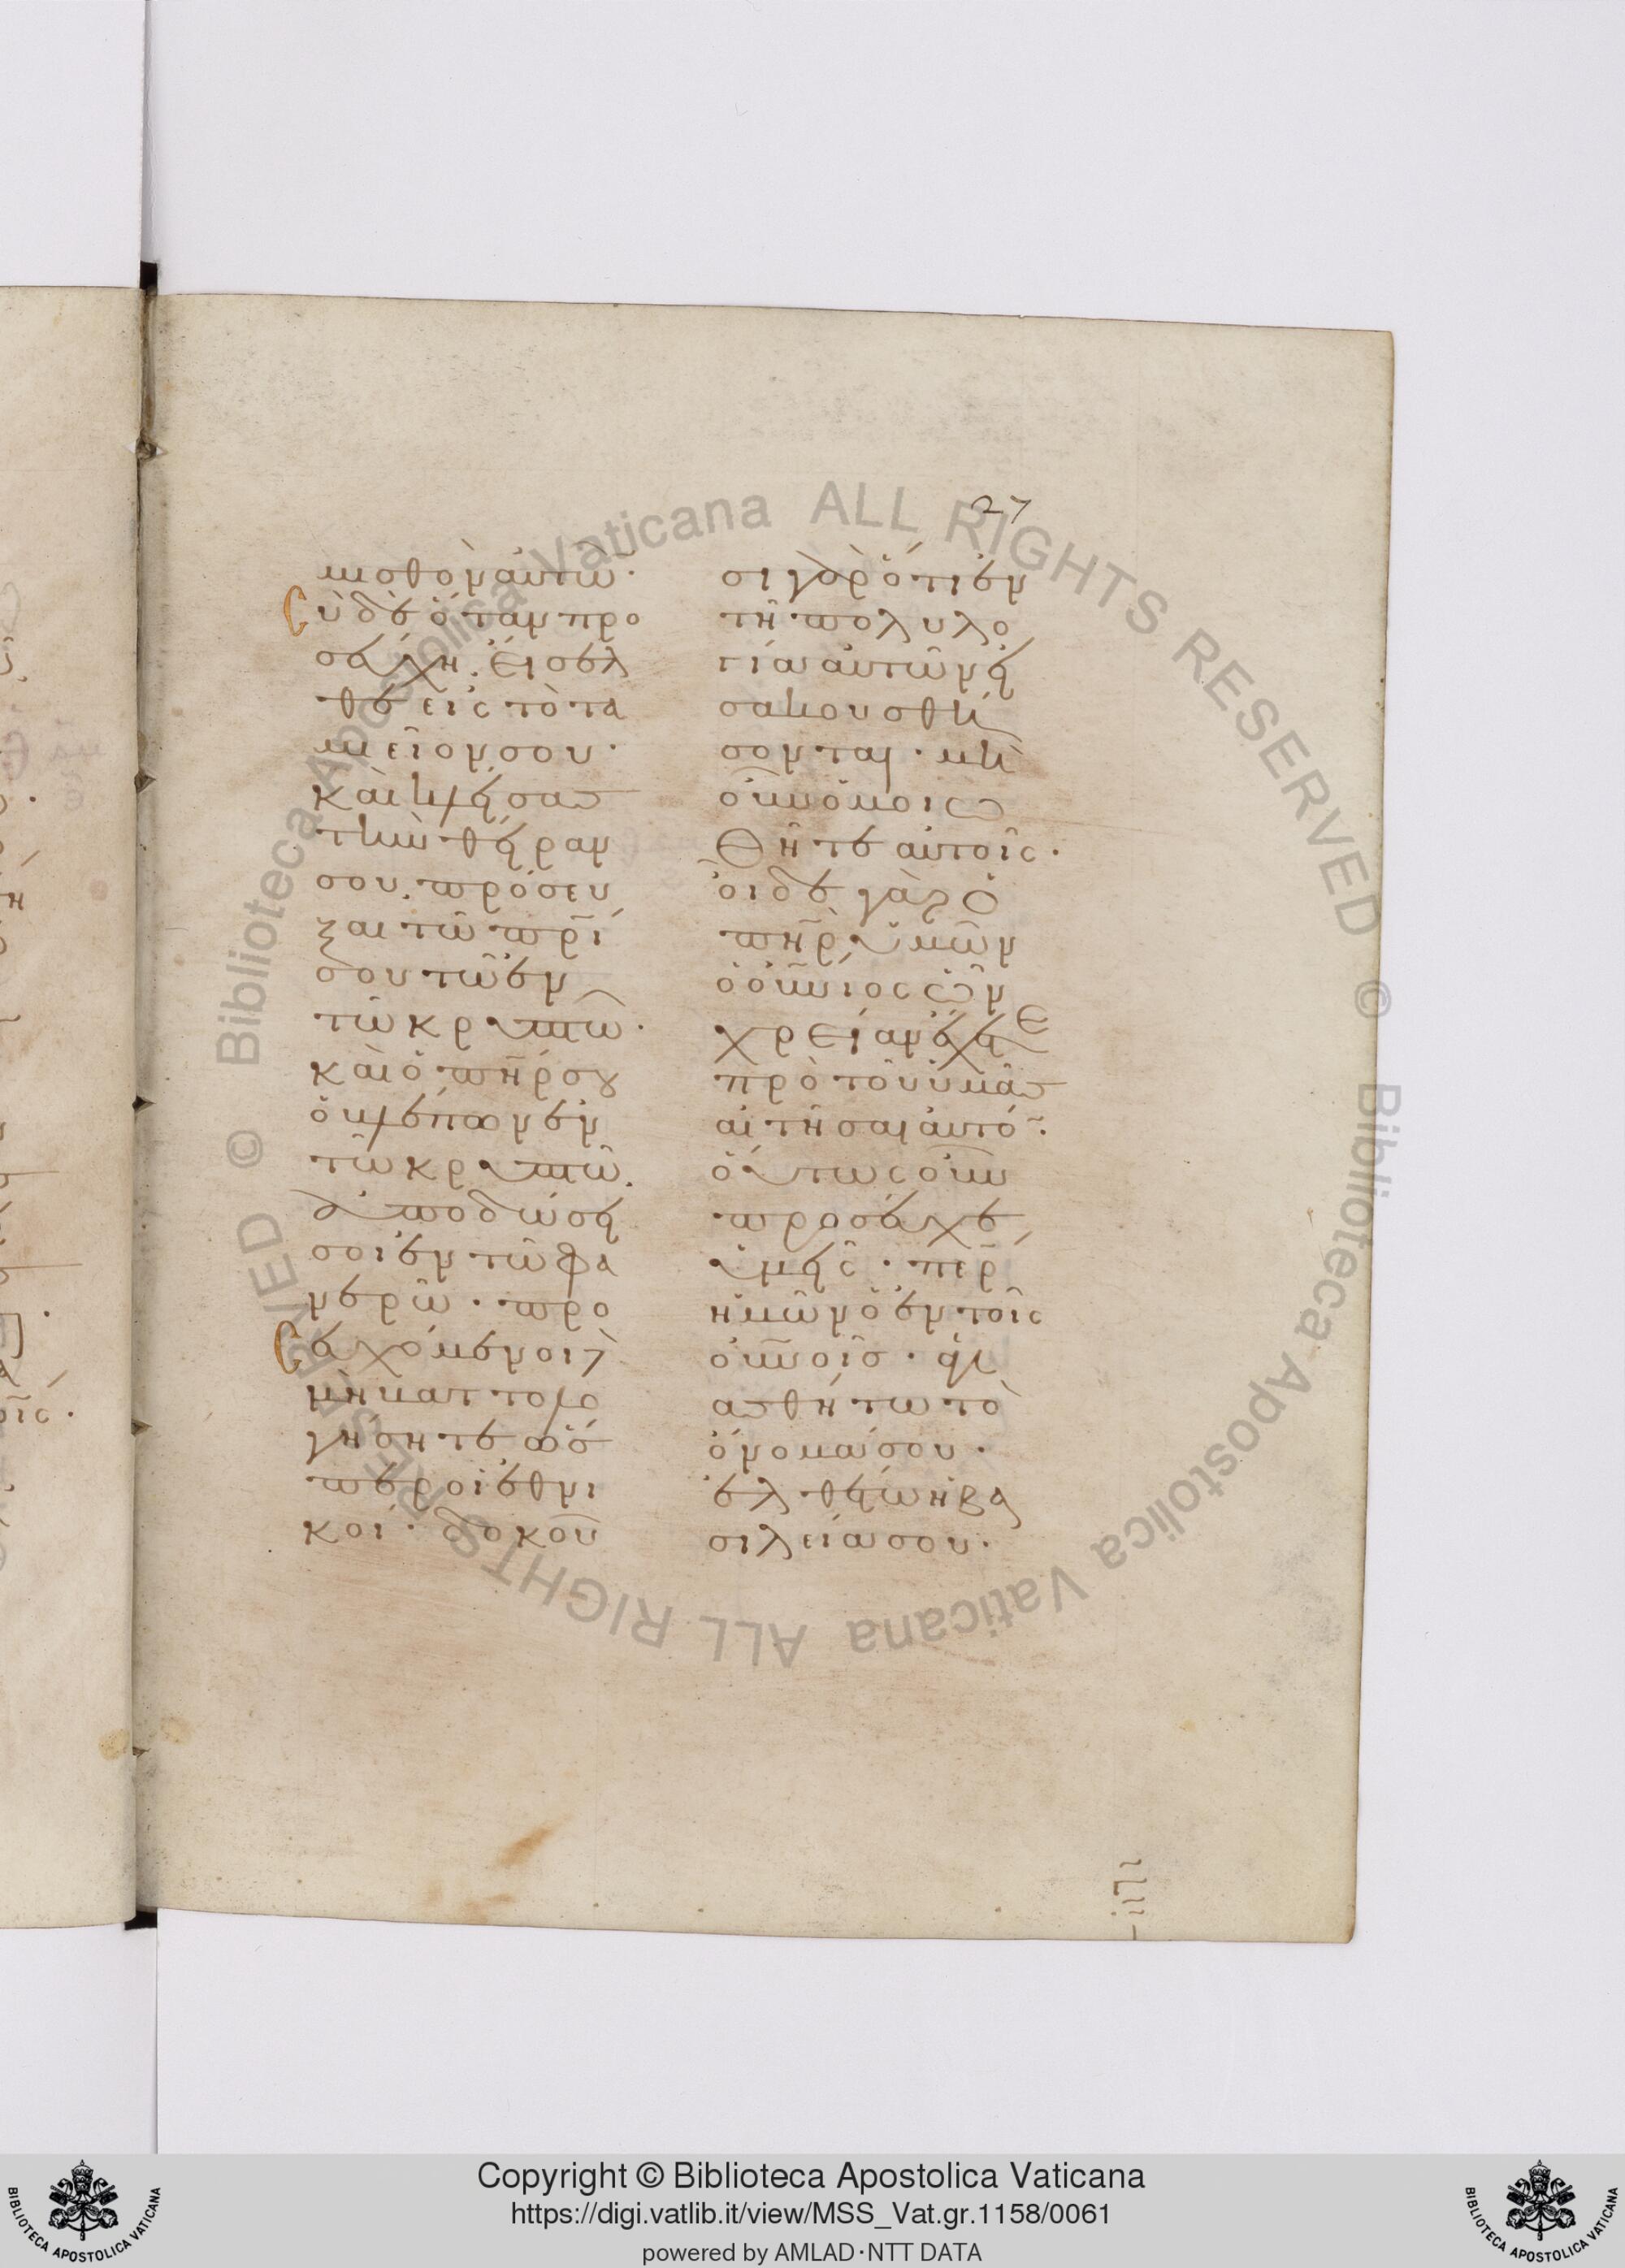 27
μισθὸν αὐτῶ̅·
σὺ δὲ ὅταν προ
σεύχη· εἴσελ
θε εἰς τὸ τα
μεῖον σου·
καὶ κλείσας
τὴν θύραν
σου, πρόσευ
ξαι τῶ π̅ρ̅ί
σου τῶ ἐν
τῶ κρυπτῶ·
καὶ ὁ π̅η̅ρ σου
ὁ βλέπων ἐν
τῶ κρυπτῶ.
ἀποδώσει
σοι ἐν τῶ φα
νερῶ· προ
σευχόμενοι δὲ
μὴ βαττολο
γήσητε ὥσ
περ οἱ ἐθνι
κοί· δοκοῦ
σι γὰρ ὅτι ἐν
τῆ πολυλο
γία αὐτῶν εἰ
σακουσθή
σονται· μὴ
οὖν ὁμοιω
θῆτε αὐτοῖς·
οἶδε γὰρ ὁ
π̅η̅ρ ὑμῶν
ὁ ο̅υ̅ν̅ιος ὧν
χρείαν ἔχετε
πρὸ τοῦ ὑμᾶς
αἰτῆσαι αὐτό̅·
οὕτως οὖν
προσεύχεσθε
ὑμεῖς· π̅ε̅ρ
ἡμῶν ὁ ἐν τοῖς
ο̅υ̅ν̅οῖς· ἁγι
ασθήτω τὸ
ὄνομά σου·
ἐλθέτω ἡ βα
σιλεία σου·
Copyright © Biblioteca Apostolica Vaticana
https://digi.vatlib.it/view/MSS_Vat.gr.1158/0061
powered by AMLAD·NTT DATA
BIBLIOTECA APOSTOLICA VATICANA
BIBLIOTECA APOSTOLICA VATICANA
© Biblioteca Apostolica Vaticana ALL RIGHTS RESERVED © Biblioteca Apostolica Vaticana ALL RIGHTS RESERVED